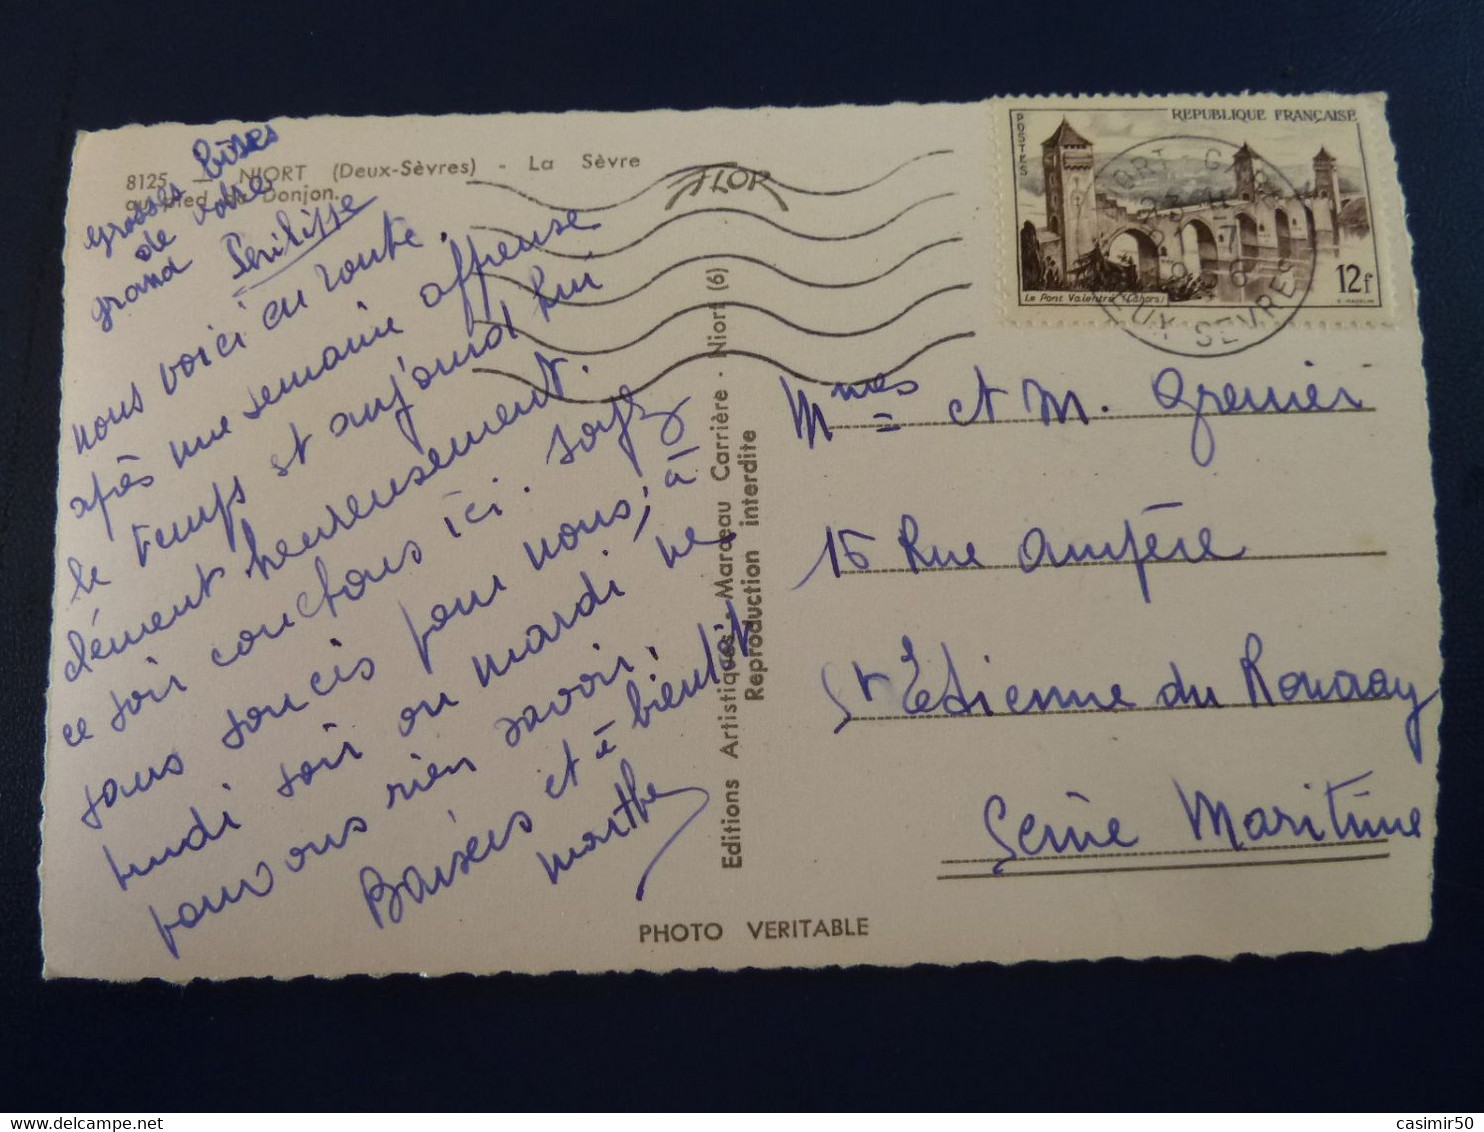 8125 — NIORT (Deux-Sèvres) - La Sèvre
au pied du Donjon.
FLOR
grosses bises
de votre
grand
nous voici en route.
après une semaine affreuse
le temps est aujourd'hui
clément heureusement.
ce soir couchons ici. soyez
sans soucis pour nous, à
lundi soir ou mardi ne
pouvons rien savoir.
Baisers et à bientôt
Marthe
Editions Artistiques Marceau Carrière - Niort (6)
Reproduction interdite
PHOTO VERITABLE
POSTES
REPUBLIQUE FRANÇAISE
Le Pont Valentré (Cahors)
12f
NIORT - GARE
DEUX SEVRES
Mmes et M. Grenier
15 Rue Ampère
St Etienne du Rouvray
Seine Maritime
casimir50